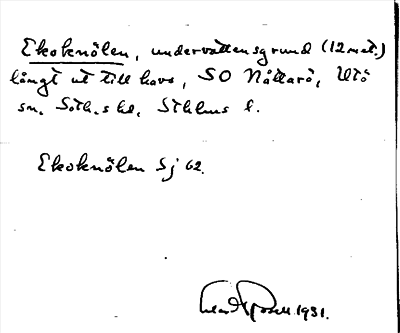 Ekoknölen, undervattensgrund (12 met.)
långt ut till havs, SO Nåttarö, Utö
sn. Soth.s hd, Sthlms l.
Ekoknölen Sj 62.
1931.